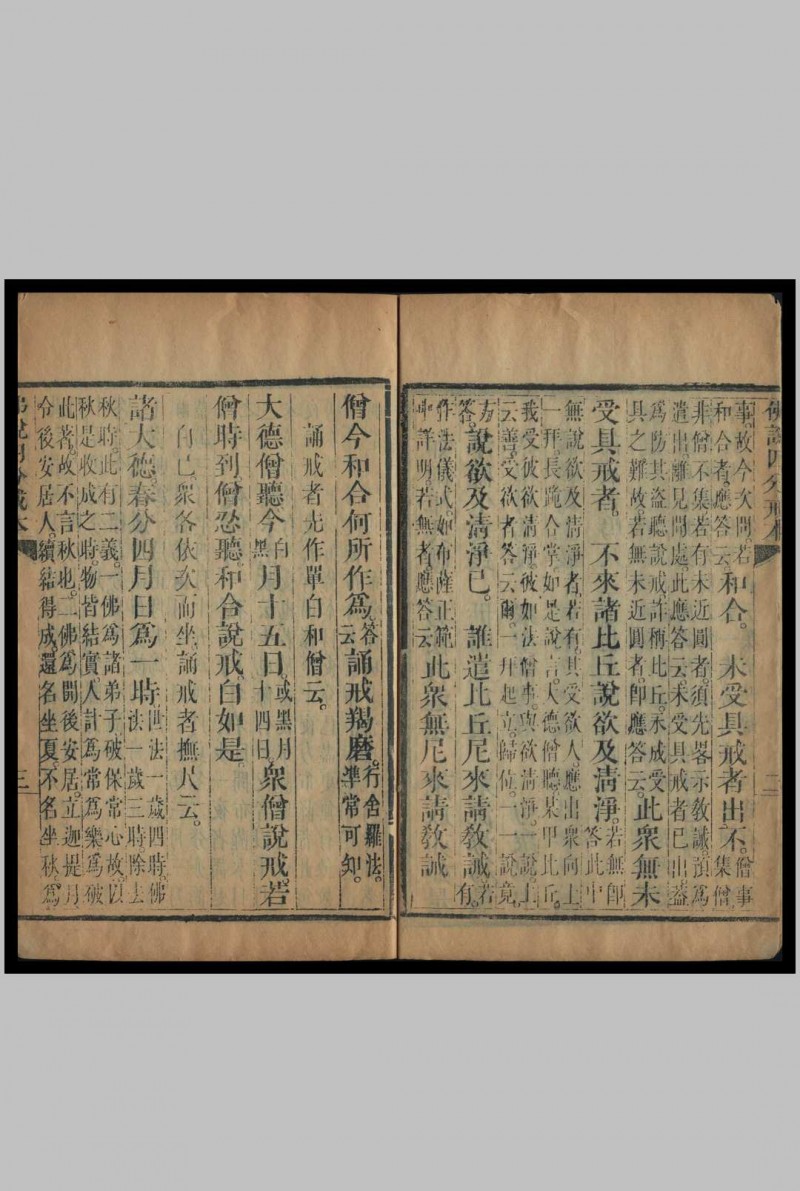 佛說四分戒本 二
事故今次問若和合者應答云和合。 未受具戒者出不。僧事集僧
非僧不集若有未近圓者須先畧示教誡預爲
遣出離見聞處此應答云未受具戒者已出葢
爲防其盜聽說戒詐稱比丘不成受
具之難故若無未近圓者即應答云此衆無未
受具戒者。 不來諸比丘說欲及清淨。若無即答此中
無說欲及清淨者若有其受欲人應出衆向上
一拜長跪合掌如是說言大德僧聽某甲比丘
我受彼欲清淨彼如法僧事與欲清淨一說上
云善受欲者答云爾一拜起立歸位一一說竟
方答。說欲及清淨已。 誰遣比丘尼來請教誡若有
作法儀式如布薩正範
中詳明若無者應答云此衆無尼來請教誡
僧今和合何所作爲答云誦戒羯磨。行舍羅法。準常可知。
誦戒者先作單白和僧云。
大德僧聽今白黑月十五日。或黑月十四日。衆僧說戒若
僧時到僧忍聽。和合說戒。白如是。
白已衆各依次而坐誦戒者撫尺云。
諸大德春分四月日爲一時世法一歲四時佛法一歲三時除去
秋時。此有二義。一佛爲諸弟子破保常心故以
秋是收成之時。物皆結實人計爲常爲樂爲破
此著。故不言秋也。二佛爲開後安居。立迦提月
令後安居人。續結得成。還名坐夏。不名坐秋。爲
佛說四分戒本 三